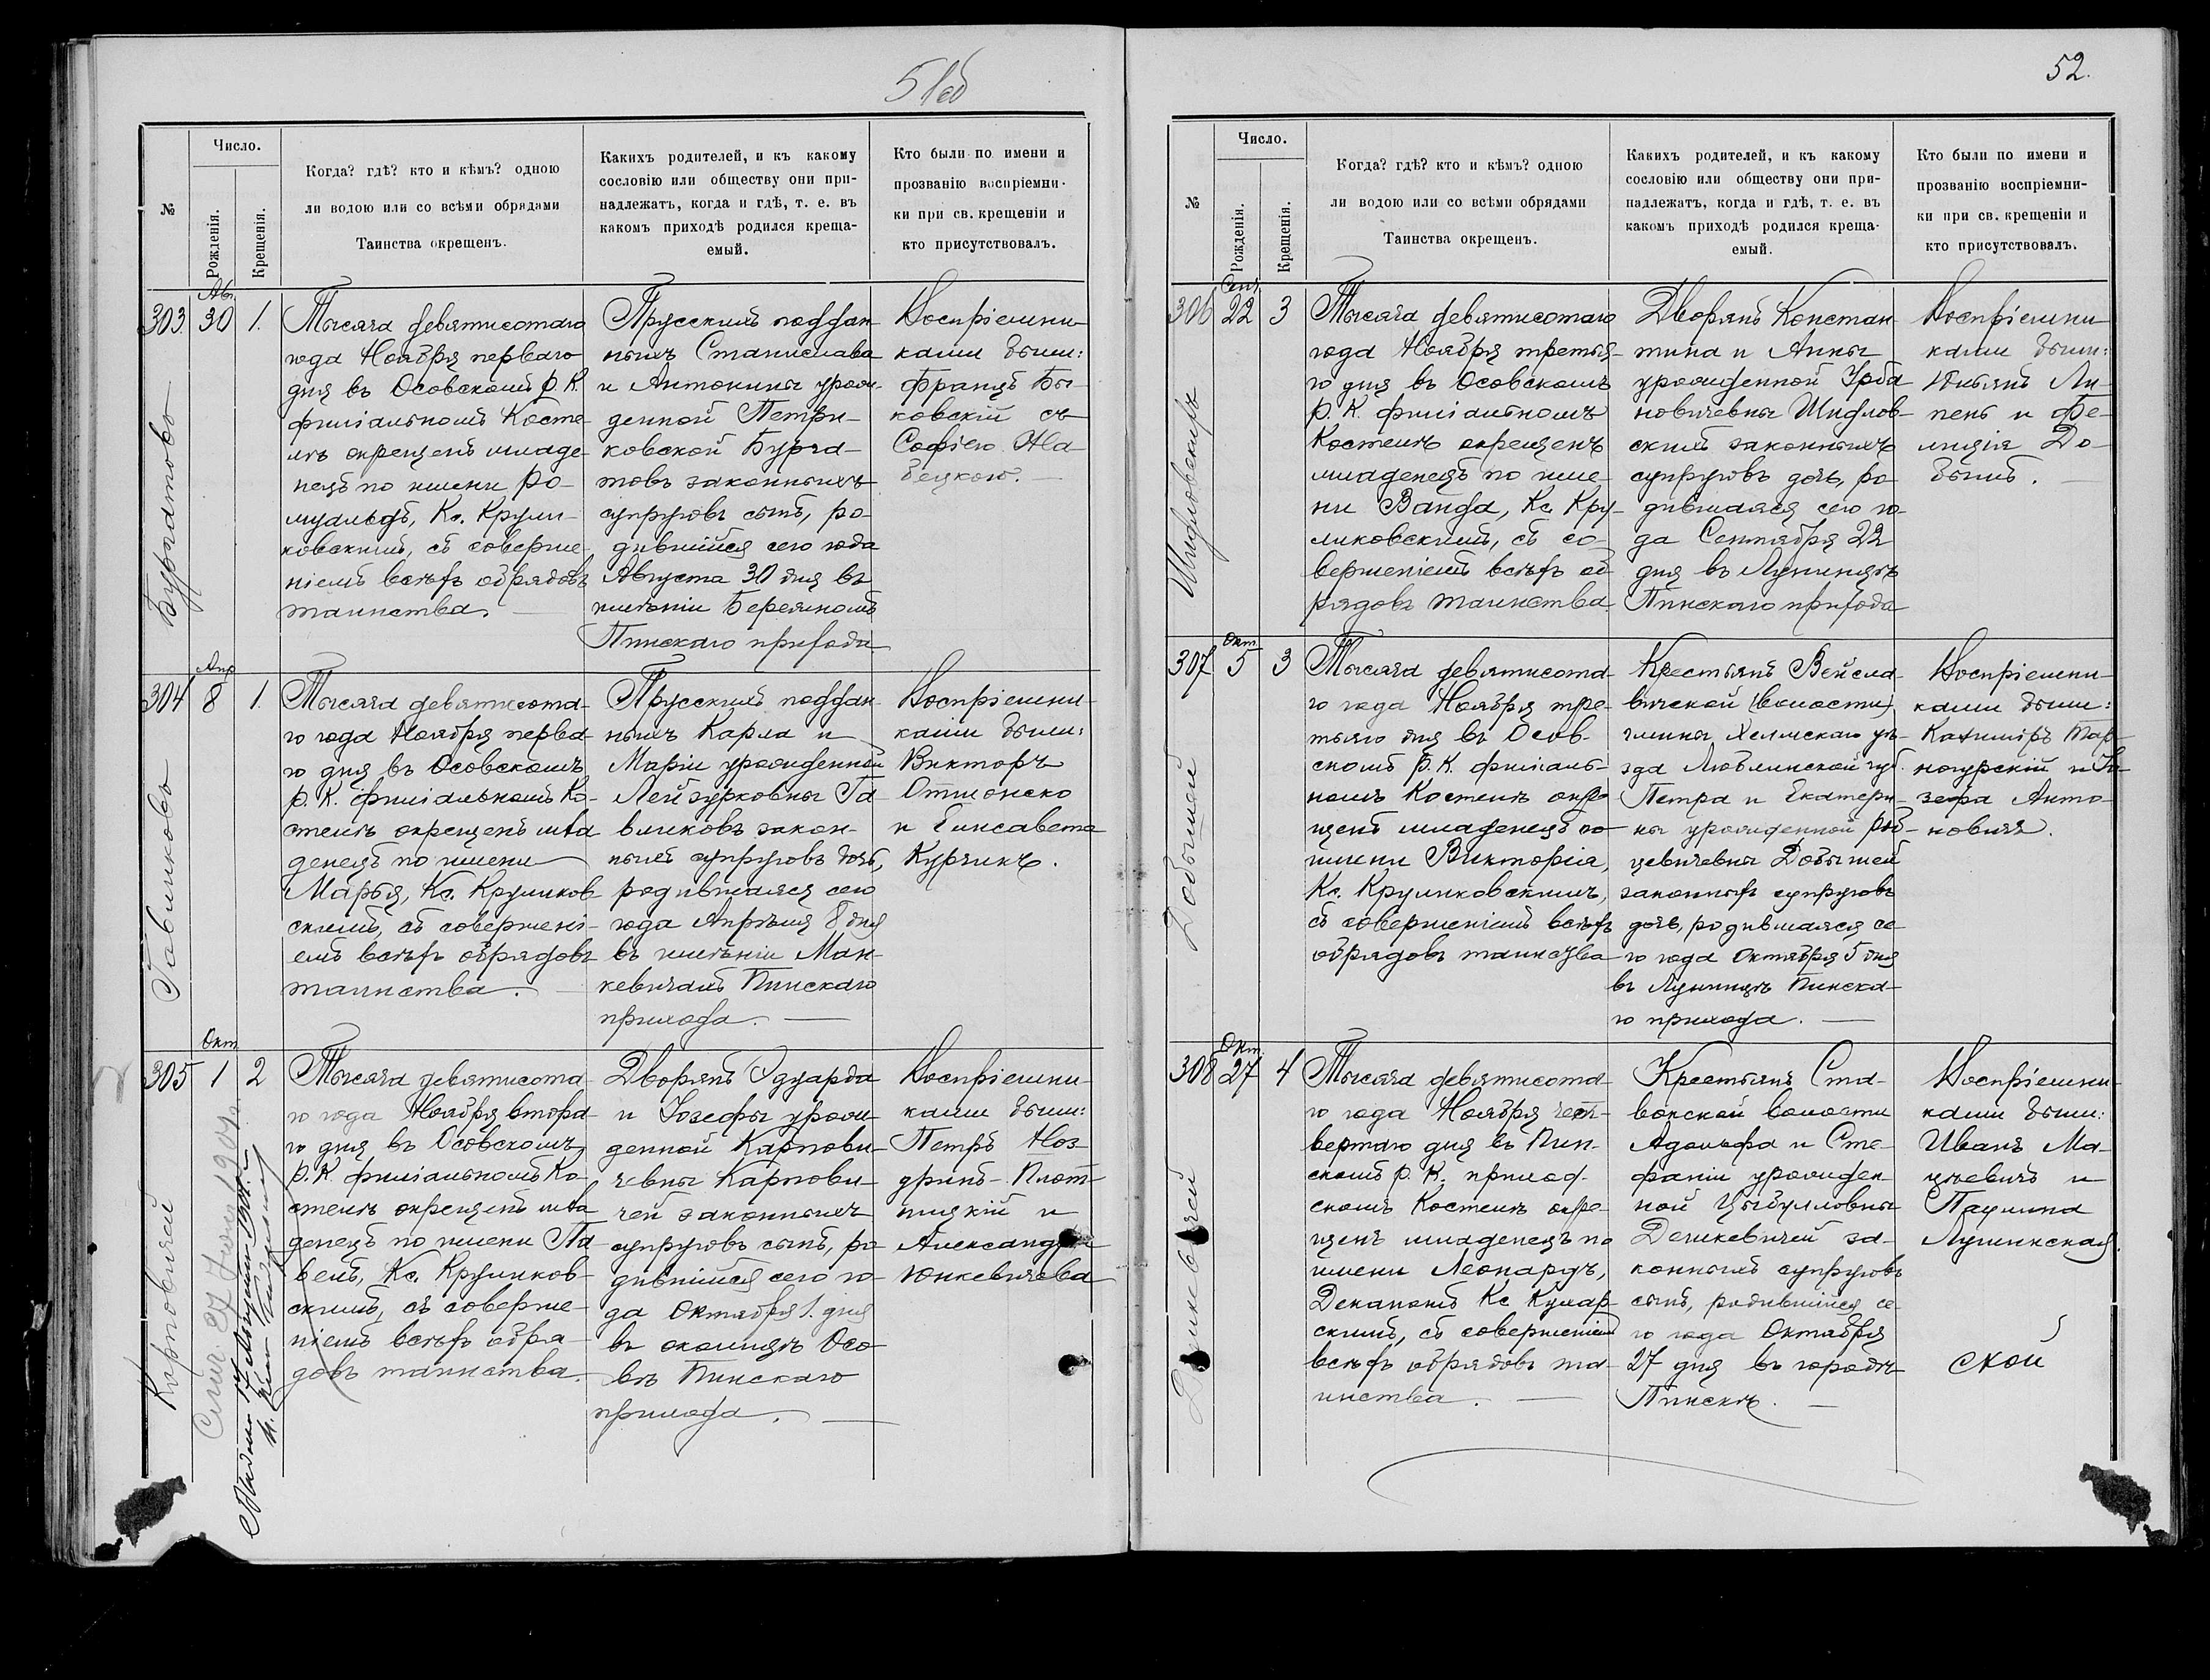 51об
№
Число.
Рожденія.
Крещенія.
Когда? гдѣ? кто и кѣмъ? одною
ли водою или со всѣми обрядами
Таинства окрещенъ.
Какихъ родителей, и къ какому
сословію или обществу они при-
надлежатъ, когда и гдѣ, т. е. въ
какомъ приходѣ родился креща-
емый.
Кто были по имени и
прозванію воспріемни-
ки при св. крещеніи и
кто присутствовалъ.
303.
Ав.
30
1.
Бургатовъ
Тысяча девятисотаго
года Ноября перваго
дня въ Осовскомъ Р. К.
филіальномъ Косте-
лѣ окрещенъ младе-
нецъ по имени Ро-
муальдъ, Кс. Крули-
ковскимъ, съ соверше-
ніемъ всѣхъ обрядовъ
таинства.
Прусскихъ поддан-
ныхъ Станислава
и Антонины урож-
денной Петри-
ковской Бурга-
товъ законныхъ
супруговъ сынъ, ро-
дившійся сего года
Августа 30 дня въ
имѣніи Березномъ
Пинскаго прихода
Воспріемни-
ками были:
Францъ Бы-
ковскій съ
Софіею
304
Апр
8
1.
Гавликовъ
Тысяча девятисота-
го года Ноября перва-
го дня въ Осовскомъ
Р. К. филіальномъ Ко-
стелѣ окрещенъ мла-
денецъ по имени
Марья, Кс. Круликов-
скимъ, съ совершені-
емъ всѣхъ обрядовъ
таинства.
Прусскихъ поддан-
ныхъ Карла и
Маріи урожденной
Лейзурковны Га-
вликовъ закон-
ныхъ супруговъ дочь,
родившаяся сего
года Апрѣля 8 дня
въ имѣніи Мань-
кевичахъ Пинскаго
прихода.
Воспріемни-
ками были:
Викторъ
Отшонско
и Елисавета
Курчикъ.
305
Окт
1
2
Карповичей
Тысяча девятисота-
го года Ноября втора-
го дня въ Осовскомъ
Р. К. филіальномъ Ко-
стелѣ окрещенъ мла-
денецъ по имени Па-
велъ, Кс. Круликов-
скимъ, съ соверше-
ніемъ всѣхъ обря-
довъ таинства.
Дворянъ Эдуарда
и Іозефы урож-
денной Карпови-
чевны Карпови-
чей законныхъ
супруговъ сынъ, ро-
дившійся сего го-
да Октября 1. дня
въ околицѣ Осо-
вѣ Пинскаго
прихода.
Воспріемни-
ками были:
Петръ Ноз-
дринъ-Плот-
ницкій и
Александра
Юнкевичова
52.
№
Число.
Рожденія.
Крещенія.
Когда? гдѣ? кто и кѣмъ? одною
ли водою или со всѣми обрядами
Таинства окрещенъ.
Какихъ родителей, и къ какому
сословію или обществу они при-
надлежатъ, когда и гдѣ, т. е. въ
какомъ приходѣ родился креща-
емый.
Кто были по имени и
прозванію воспріемни-
ки при св. крещеніи и
кто присутствовалъ.
306
Сент.
22
3
Шидловскихъ
Тысяча девятисотаго
года Ноября третья-
го дня въ Осовскомъ
Р. К. филіальномъ
Костелѣ окрещенъ
младенецъ по име-
ни Ванда, Кс. Кру-
ликовскимъ, съ со-
вершеніемъ всѣхъ об-
рядовъ таинства
Дворянъ Констан-
тина и Анны
урожденной Урба-
новичевны Шидлов-
скихъ законныхъ
супруговъ дочь, ро-
дившаяся сего го-
да Сентября 22
дня въ Лунинцѣ
Пинскаго прихода
Воспріемни-
ками были:
Юльянъ Ли-
пень и Фе-
лиція До-
307
Окт
5
3
Добышей
Тысяча девятисота-
го года Ноября тре-
тьяго дня въ Осов-
скомъ Р. К. филіаль-
номъ Костелѣ окре-
щенъ младенецъ по
имени Викторія,
Кс. Круликовскимъ,
съ совершеніемъ всѣхъ
обрядовъ таинства
Крестьянъ Вейсла-
вичской (волости)
гмины Хелмскаго уѣ-
зда Люблинской губ.
Петра и Екатери-
ны урожденной
Добышей
законныхъ супруговъ
дочь, родившаяся се-
го года Октября 5 дня
въ Лунинцѣ Пинска-
го прихода.
Воспріемни-
ками были:
Казимиръ Тар-
ногурскій и Іо-
зефа Анто-
новичъ.
308
Окт
27
4
Тысяча девятисота-
го года Ноября чет-
вертаго дня въ Пин-
скомъ Р. К. приход-
скомъ Костелѣ окре-
щенъ младенецъ по
имени Леонардъ,
Деканомъ Кс. Кухар-
скимъ, съ совершеніемъ
всѣхъ обрядовъ та-
инства.
Крестьянъ Ста-
вокской волости
Адольфа и Сте-
фаніи урожден-
ной Цыбулловны
Демкевичей за-
конныхъ супруговъ
сынъ, родившійся се-
го года Октября
27 дня въ городѣ
Пинскѣ.
Воспріемни-
ками были:
Иванъ Ма-
цкевичъ и
Паулина
Лушинская.
ской